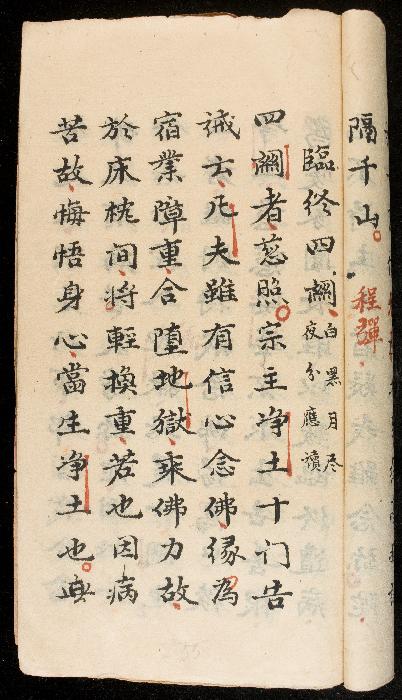 隔千山 程彈
臨终四𮤲 白黑月尽
夜分應讀
四𮤲者慈照宗主净土十门告
诫云凡夫雖有信心念佛縁為
宿業障重合堕地獄乘佛力故
於床枕间将輕换重若也因病
苦故悔悟身心當生净土也